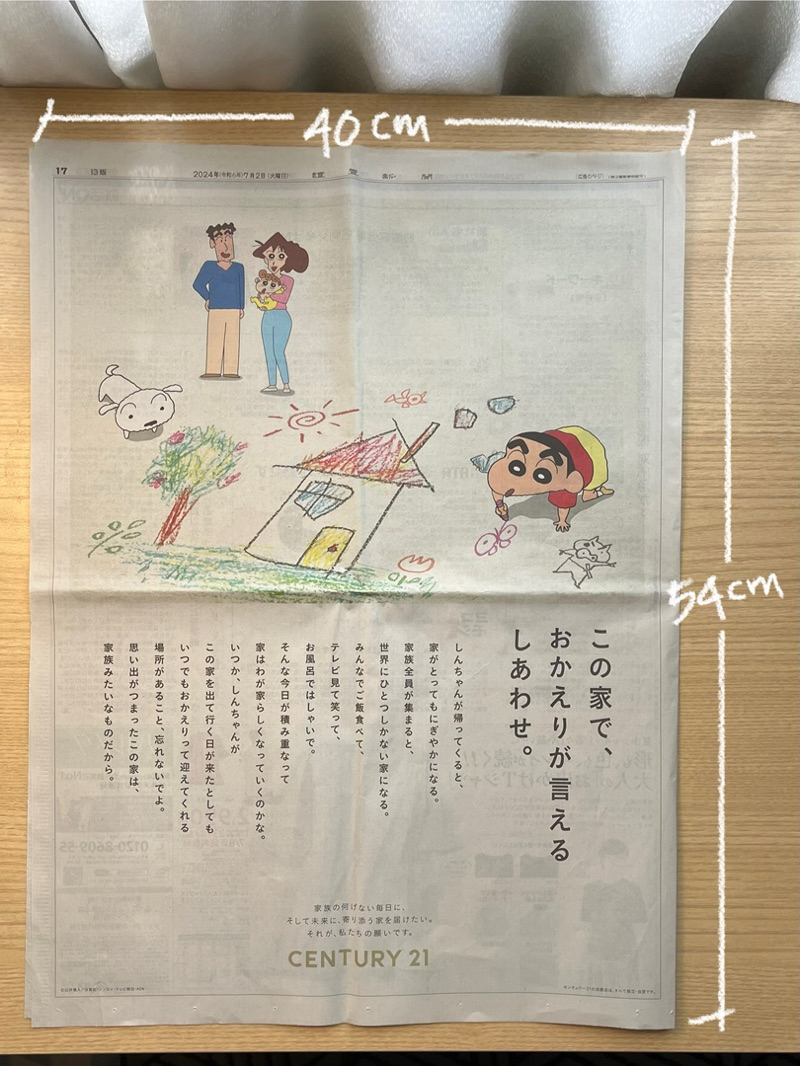 40cm
17
日版
2024年(令和6年)7月2日(火曜日)
讀賣新聞
54cm
この家で、
おかえりが言える
しあわせ。
しんちゃんが帰ってくると、
家がとってもにぎやかになる。
家族全員が集まると、
世界にひとつしかない家になる。
みんなでご飯食べて、
テレビ見て笑って、
お風呂ではしゃいで。
そんな今日が積み重なって
家はわが家らしくなっていくのかな。
いつか、しんちゃんが
この家を出て行く日が来たとしても
いつでもおかえりって迎えてくれる
場所があること、忘れないでよ。
思い出がつまったこの家は、
家族みたいなものだから。
家族の何げない毎日に、
そして未来に、寄り添う家を届けたい。
それが、私たちの願いです。
CENTURY 21
0120-8609-55